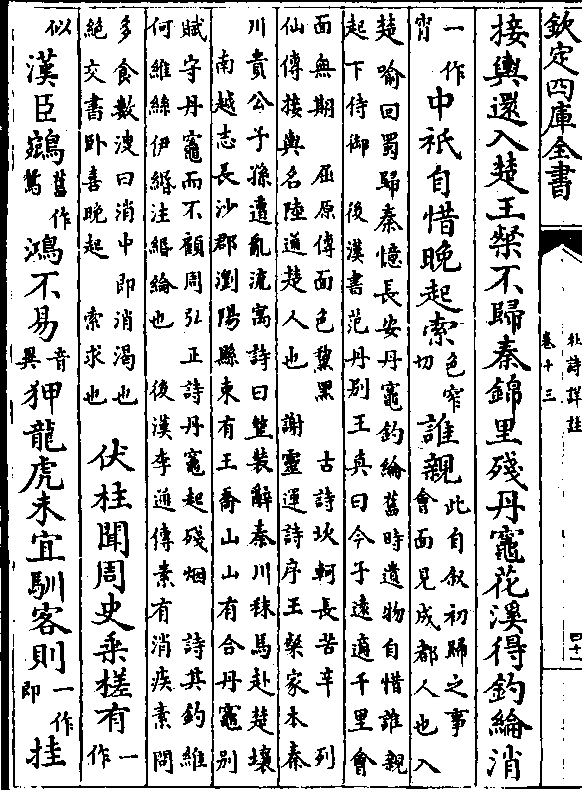 欽定四庫全書
杜詩詳註
卷十三
四十一
接輿還入楚王粲不歸秦錦里殘丹竈花溪得釣綸消
一作
宵
中衹自惜晚起索
色窄
切
誰親
此自叙初歸之事
會面見成都人也入
楚喻回蜀歸秦憶長安丹竈釣綸舊時遺物自惜誰親
起下侍御
後漢書范丹别王奐曰今子遠適千里會
面無期
屈原傳面色黧黑
古詩坎軻長苦辛
列
仙傳接輿名陸通楚人也
謝靈運詩序王粲家本秦
川貴公子孫遭亂流寓詩曰整装辭秦川秣馬赴楚壤
南越志長沙郡瀏陽縣東有王喬山山有合丹竈别
賦守丹竈而不顧周弘正詩丹竈起殘烟
詩其釣維
何維絲伊緡注緡綸也
後漢李通傳素有消疾素問
多食數溲曰消中即消渴也
絶交書卧喜晚起
索求也
伏柱聞周史乗槎有
一
作
似
漢臣鵷
舊作
鴛
鴻不易
音
異
狎龍虎未宜馴客則
一作
即
挂